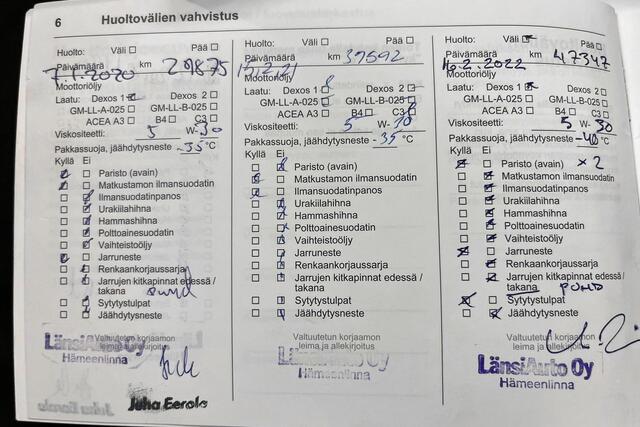 6 Huoltovälien vahvistus
Huolto: Väli ☐ Pää ☐
Päivämäärä km
7.1.2020 29875
Moottoriöljy
Laatu: Dexos 1 Dexos 2 ☐
GM-LL-A-025 ☐ GM-LL-B-025 ☐
ACEA A3 ☐ B4 ☐ C3
Viskositeetti: 5 W-30
Pakkassuoja, jäähdytysneste -35 °C
Kyllä Ei
Paristo (avain)
Matkustamon ilmansuodatin
Ilmansuodatinpanos
Urakiilahihna
Hammashihna
Polttoainesuodatin
Vaihteistoöljy
Jarruneste
Renkaankorjaussarja
Jarrujen kitkapinnat edessä /
takana
Sytytystulpat
Jäähdytysneste
Valtuutetun korjaamon
leima ja allekirjoitus
LänsiAuto Oy
Hämeenlinna
Juha Eerola
Huolto: Väli ☐ Pää ☐
Päivämäärä km 37592
Moottoriöljy
Laatu: Dexos 1 Dexos 2
GM-LL-A-025 GM-LL-B-025
ACEA A3 B4 C3
Viskositeetti: 5 W-
Pakkassuoja, jäähdytysneste -35 °C
Kyllä Ei
Paristo (avain)
Matkustamon ilmansuodatin
Ilmansuodatinpanos
Urakiilahihna
Hammashihna
Polttoainesuodatin
Vaihteistoöljy
Jarruneste
Renkaankorjaussarja
Jarrujen kitkapinnat edessä /
takana
Sytytystulpat
Jäähdytysneste
Valtuutetun korjaamon
leima ja allekirjoitus
LänsiAuto Oy
Hämeenlinna
Huolto: Väli Pää ☐
Päivämäärä km 47347
16.2.2022
Moottoriöljy
Laatu: Dexos 1 Dexos 2 ☐
GM-LL-A-025 ☐ GM-LL-B-025 ☐
ACEA A3 ☐ B4 ☐ C3 ☐
Viskositeetti: 5 W- 30
Pakkassuoja, jäähdytysneste -40 °C
Kyllä Ei
Paristo (avain) x 2
Matkustamon ilmansuodatin
Ilmansuodatinpanos
Urakiilahihna
Hammashihna
Polttoainesuodatin
Vaihteistoöljy
Jarruneste
Renkaankorjaussarja
Jarrujen kitkapinnat edessä /
takana
Sytytystulpat
Jäähdytysneste
Valtuutetun korjaamon
leima ja allekirjoitus
LänsiAuto Oy
Hämeenlinna